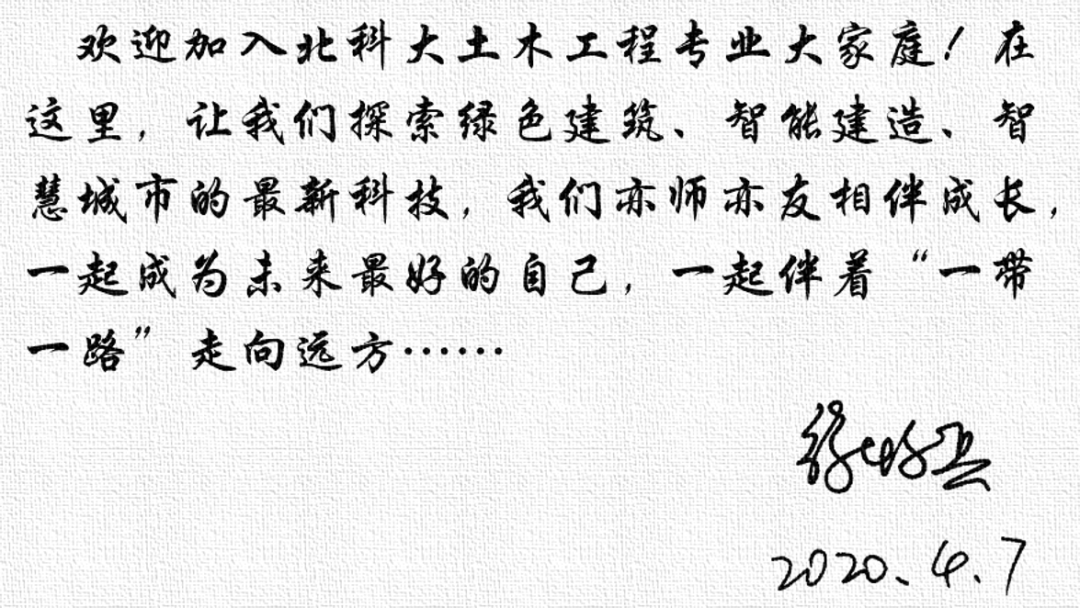 欢迎加入北科大土木工程专业大家庭！在
这里，让我们探索绿色建筑、智能建造、智
慧城市的最新科技，我们亦师亦友相伴成长，
一起成为未来最好的自己，一起伴着“一带
一路”走向远方……
2020.4.7